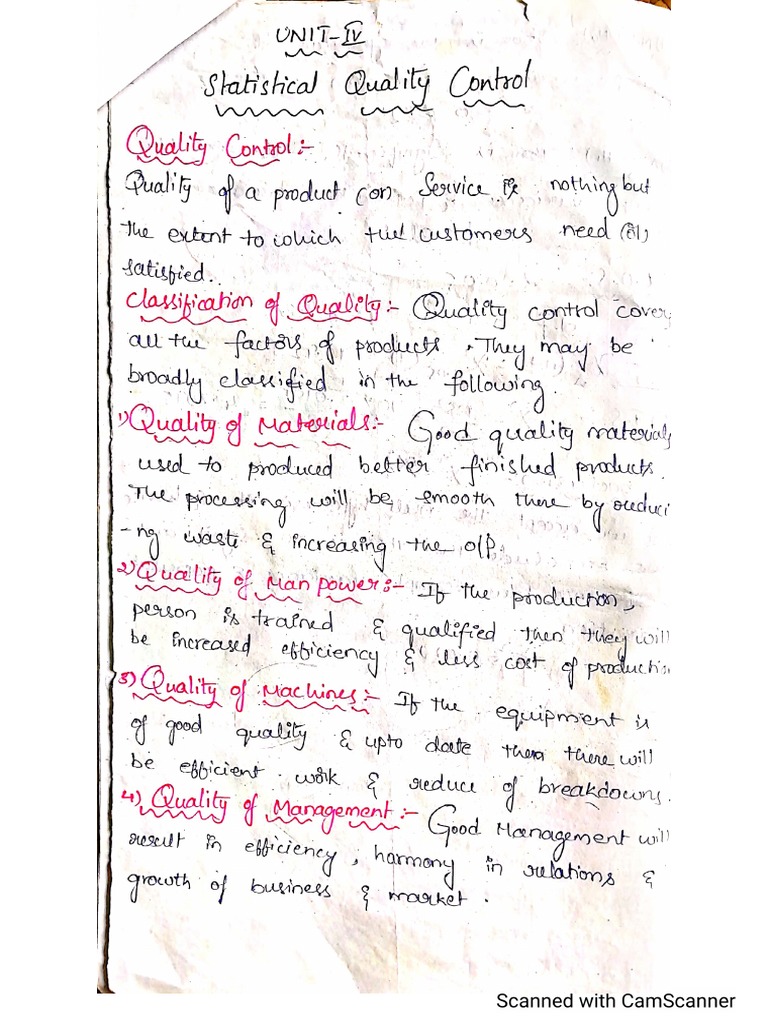 UNIT-IV
Statistical Quality Control
Quality Control:-
Quality of a product (or) Service is nothing but
the extent to which the customers need
satisfied.
Classification of Quality:- Quality control cover
all the factors of products. They may be
broadly classified in the following.
1) Quality of Materials:- Good quality materials
used to produced better finished products.
The processing will be smooth there by reduci
-ng waste & increasing the o/p.
2) Quality of Man power:- If the production,
person is trained & qualified then they will
be increased efficiency & less cost of production
3) Quality of Machines:- If the equipment is
of good quality & upto date then there will
be efficient work & reduce of breakdowns.
4) Quality of Management:- Good Management will
result in efficiency, harmony in relations &
growth of business & market.
Scanned with CamScanner